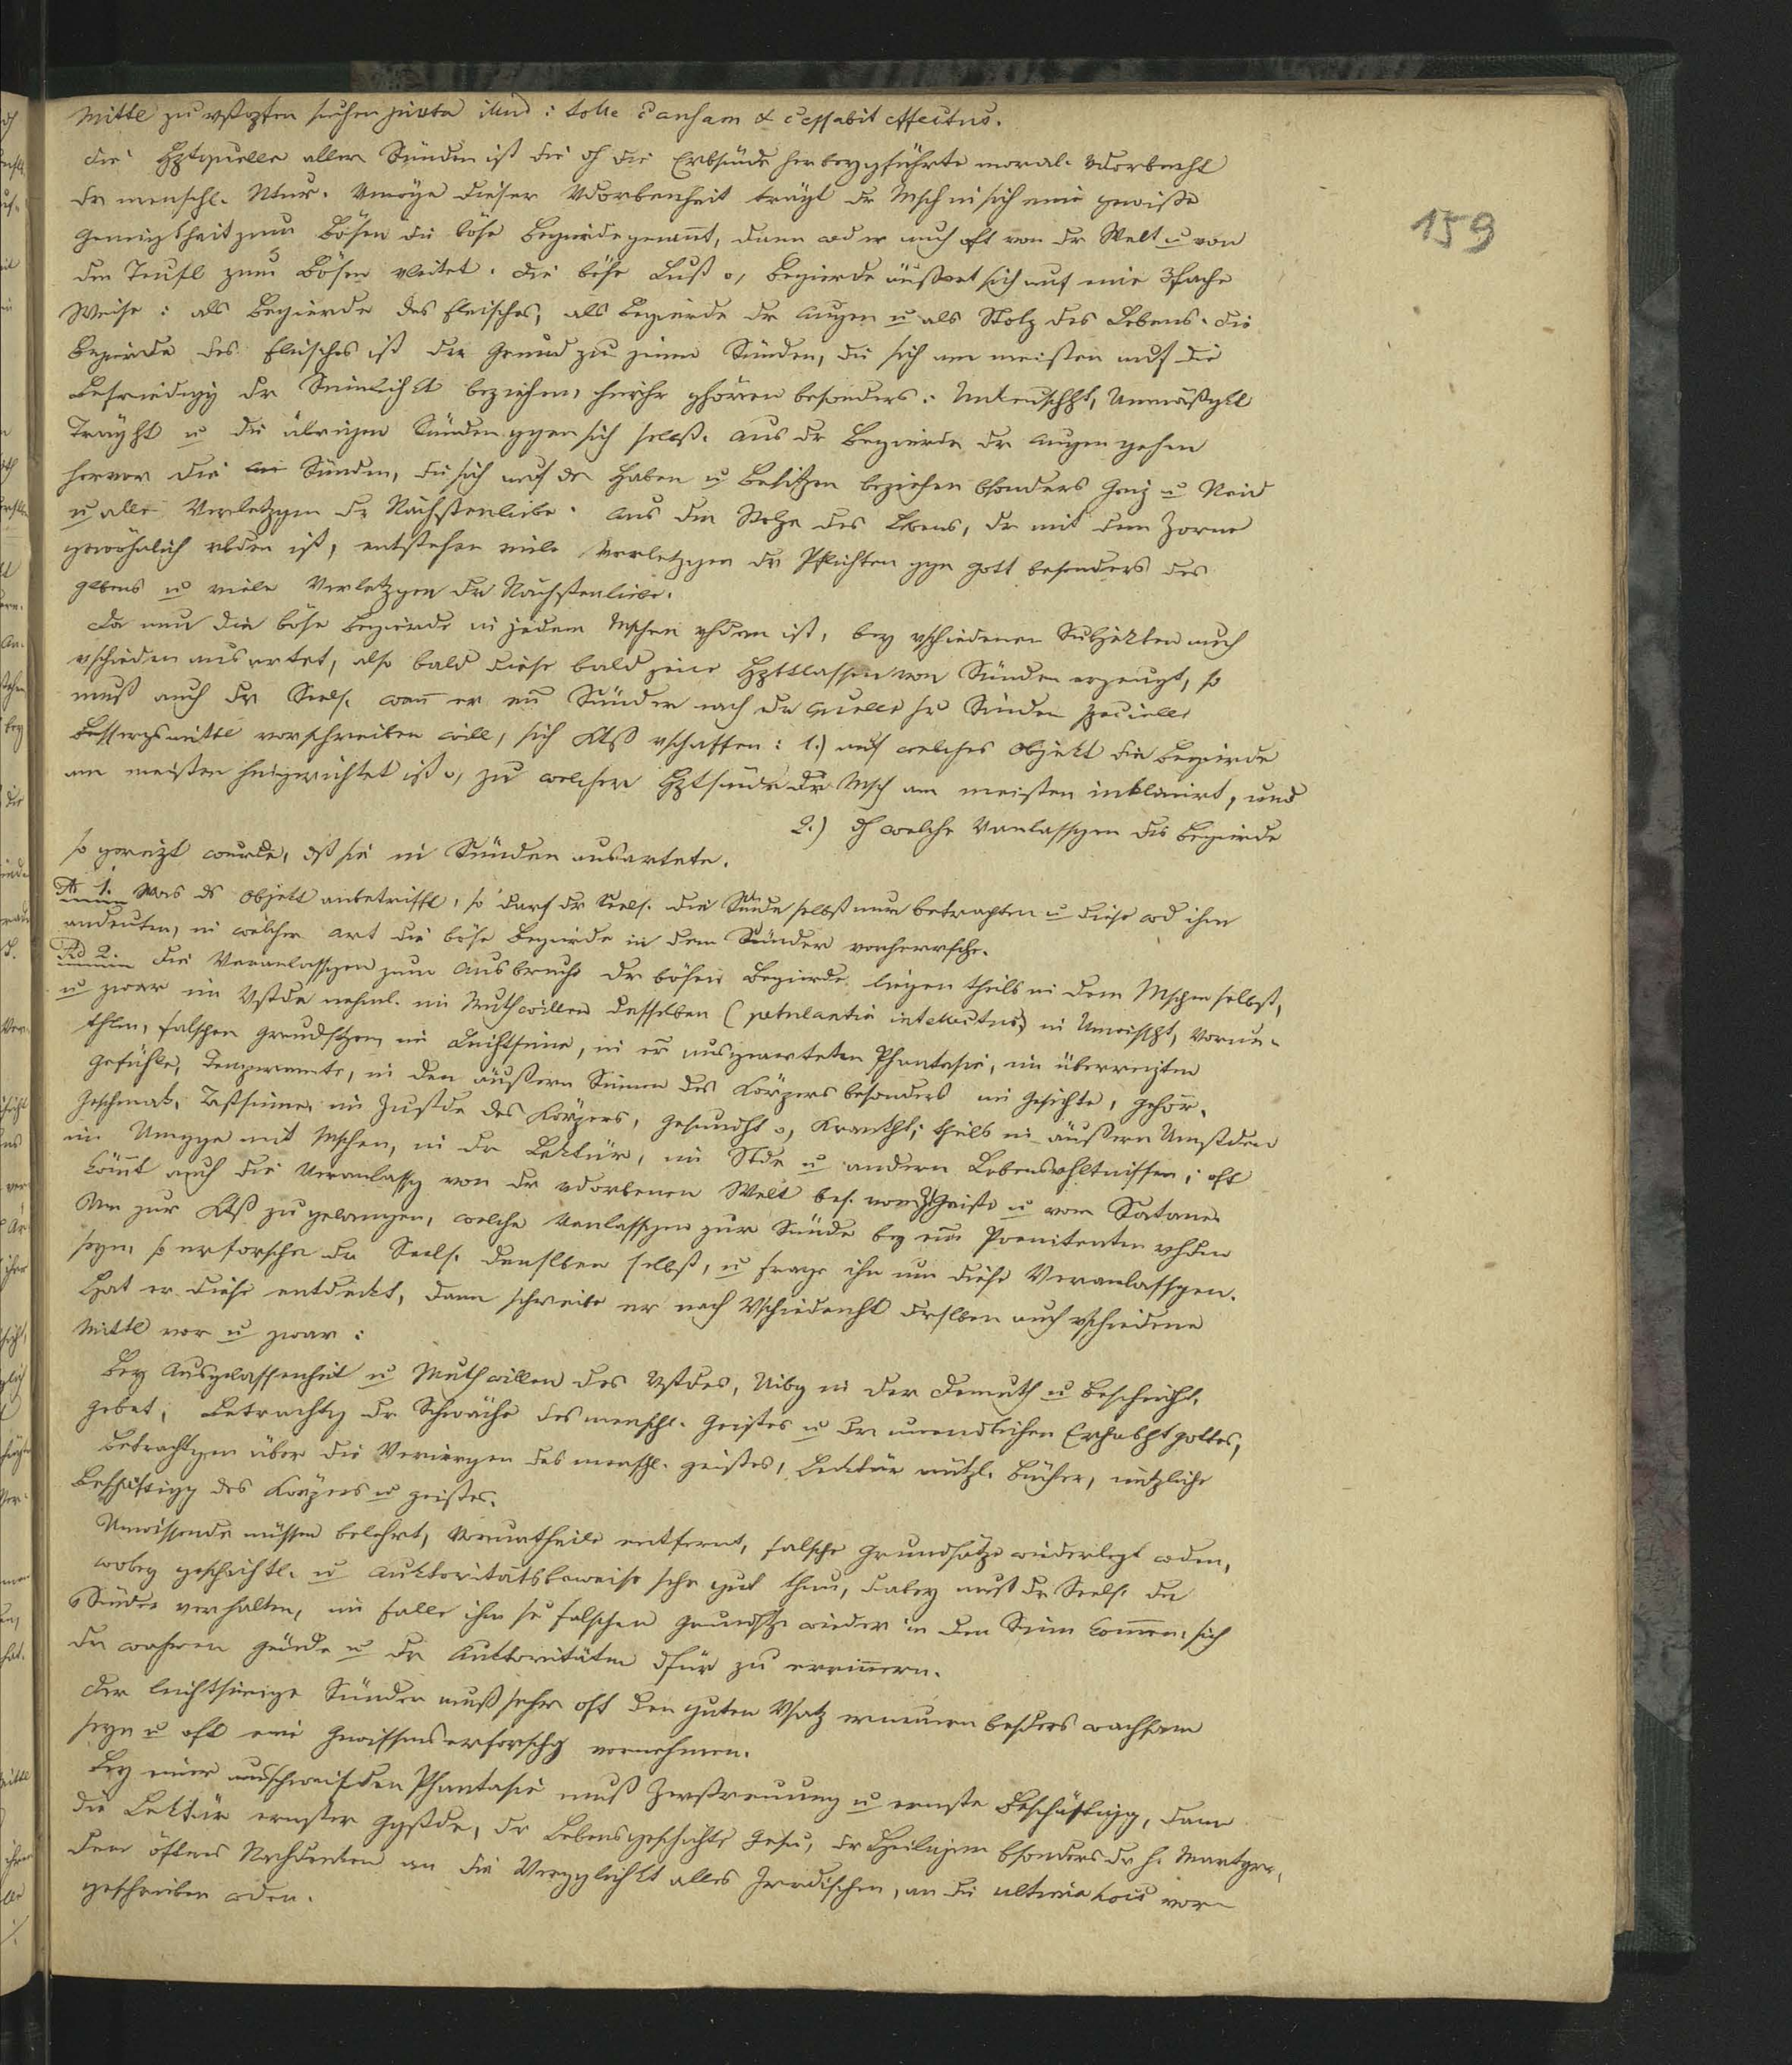 Mittl zu vstopfen suchen juxta illud: tolle causam & cessabit effectus.
Die Hptquelle aller Sünden ist die dh die Erbsünde herbeygeführte moral. Vdorbenht
dr menschl. Ntur. Vmöge dieser Vdorbenheit trägt dr Msch in sich eine gewisse
Geneigtheit zum Bösen die böse Begierde genannt, dann wd er auch oft von dr Welt u von
dem Teufl zum Bösen vleitet. Die böse Lust o, Begierde äußert sich auf eine 3fache
Weise: als Begierde des Fleisches, als Begierde dr Augen u als Stolz des Lebens. Die
Begierde des Fleisches ist der Grund zu jenen Sünden, die sich am meisten auf die
Befriedigg dr Sinnlichkt beziehen, hieher ghören besonders: Unkeuschht, Unmäßgkt
Träght u die übrigen Sünden ggen sich selbst. Aus dr Begierde dr Augen gehen
hervor die Sünden, die sich auf ds Haben u Besitzen beziehen bsonders Geiz u Neid
u alle Verletzgen dr Nächstenliebe. Aus dem Stolze des Lebens, dr mit dem Zorne
gewöhnlich vbden ist, entstehen viele Verletzgen dr Pflichten ggn Gott besonders des
Glbens u viele Verletzgen dr Nächstenliebe.
Da nun die böse Begierde in jedem Mschen vhden ist, bey vschiedenen Subjekten auch
vschieden ausartet, also bald diese bald jene Hptklassen von Sünden erzeugt, so
muß auch dr Seels. wenn er em Sünder nach dr Quelle sr Sünden specielle
Bessergsmittl vorschreiben will, sich Ktß vschaffen: 1.) auf welches Objekt die Begierde
am meisten hingerichtet ist o, zu welcher Hptsünde dr Msch am meisten inklinirt, und
2.) dh welche Vanlassgen die Begierde
so gereizt wurde, dß sie in Sünden ausartete.
Ad 1. Was ds Objekt anbetrifft, so darf dr Seels. die Sünde selbst nur betrachten u diese wd ihm
andeuten, in welcher Art die böse Begierde in dem Sünder vorherrsche.
Ad 2. Die Veranlassgen zum Ausbruche dr bösen Begierde liegen theils in dem Mschen selbst,
u zwar im Vstde nehml. im Muthwillen desselben (petulantia intellectus) in Unwissht, Vorur-
thlen, falschen Grundstzen, im Leichtsinne, in er ausgearteten Phantasie, im überreizten
Gefühle, Temperamte, in den äußern Sinnen des Körpers besonders im Gesichte, Gehör,
Geschmak, Tastsinne, im Zustde des Körpers, Gesundht o, Krankht; theils in äußern Umstden
im Umgge mit Mschen, in dr Lektür, im Stde u andern Lebensvhltnissen; oft
kömmt auch die Veranlassg von dr vdorbenen Welt bes. vom Zeitgeiste u vom Satane.
Um zur Ktß zu gelangen, welche Vanlassgen zur Sünde bey em Poenitenten vhden
seyn, so erforsche dr Seels. denslben selbst, u frage ihn um diese Veranlassgen.
Hat er diese entdeckt, dann schreibe er nach Vschiedenht derslben auch vschiedene
Mittl vor u zwar:
Bey Ausgelassenheit u Muthwillen des Vstdes, Uibg in der Demuth u Bescheidht,
Gebet, Betrachtg dr Schwäche des menschl. Geistes u dr unendlichen Erhabht Gottes,
Betrachtgen über die Verirrgen des menschl. Geistes, Lektür nützl. Bücher, nützliche
Beschäftigg des Körpers u Geistes.
Unwissende müssen belehrt, Vorurtheile entfernt, falsche Grundsätze wiederlegt wden,
wobey geschichtl. u Auktoritätsbeweise sehr gut thun, dabey muß dr Seels. den
Sünder verhalten, im Falle ihm se falschen Grundstze wieder in den Sinn kommen, sich
dr wahren Gründe u dr Auktoritäten dfür zu errinnern.
Der leichtsinnige Sünder muß sehr oft den guten Vsatz erneuern besders wachsam
seyn u oft eine Gewissenserforschg vornehmen.
Bey einer ausschweifden Phantasie muß Zerstreuung u ernste Beschäftigg, dann
die Lektür ernster Ggstde, dr Lebensgeschichte Jesu, dr Heiligen bsonders dr h. Martyrer,
dann öfteres Nachdenken an die Vergglichkt alles Irrdischen, an die ultima vor-
geschrieben wden.
159